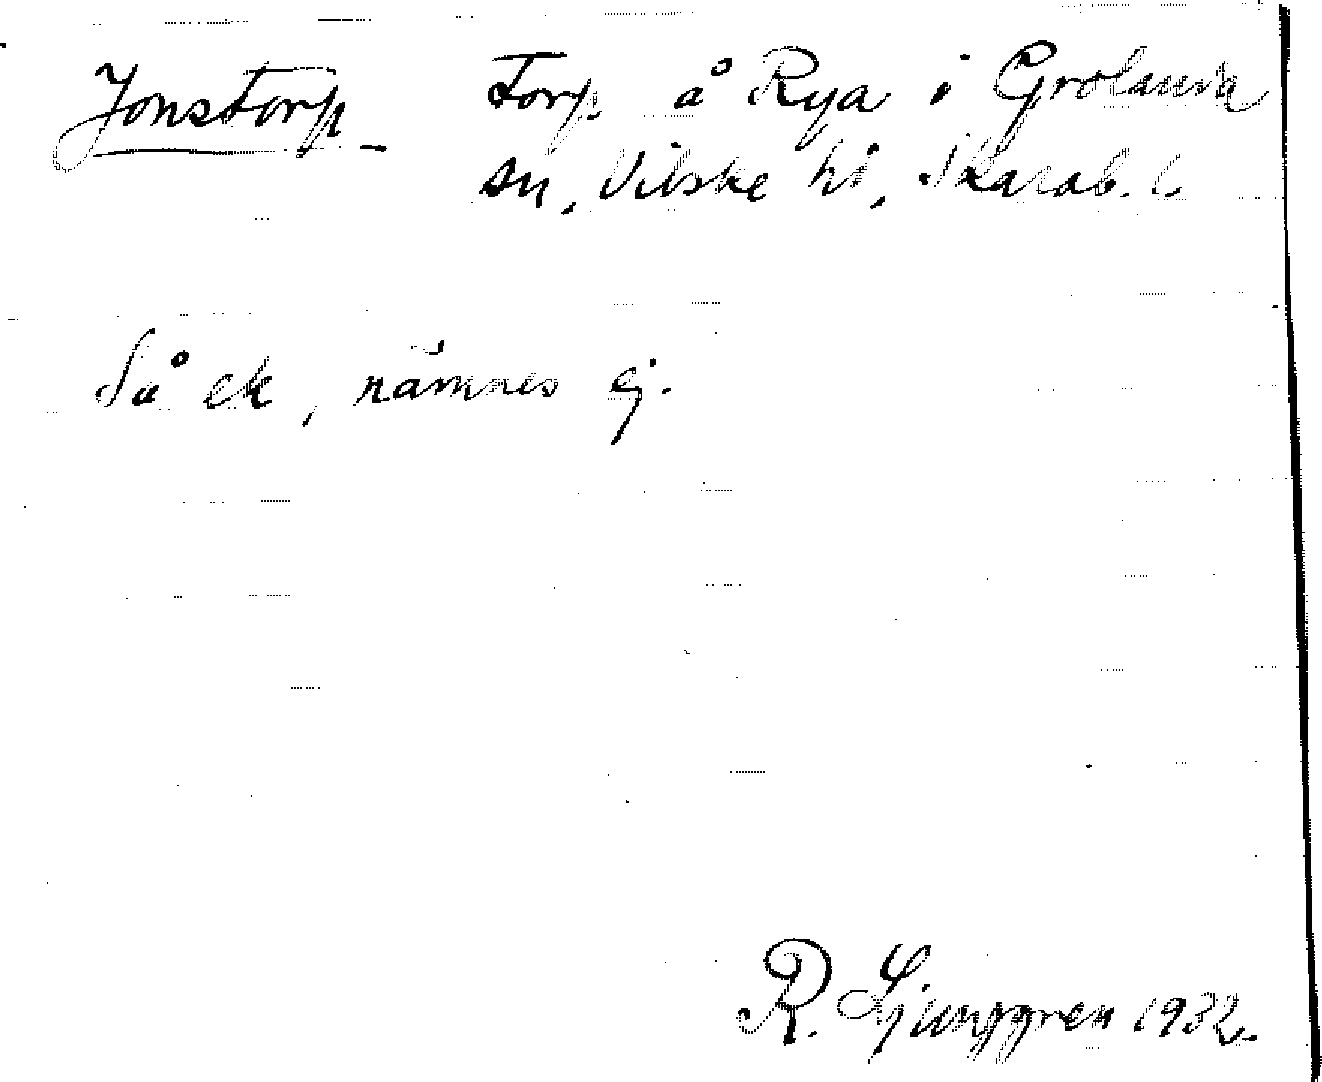 Jonstorp Torp å Rya i Grolanda
sn, Vilske hd, Skarab. l.
Så ek, nämnes ej.
R. Ljunggren 1932.